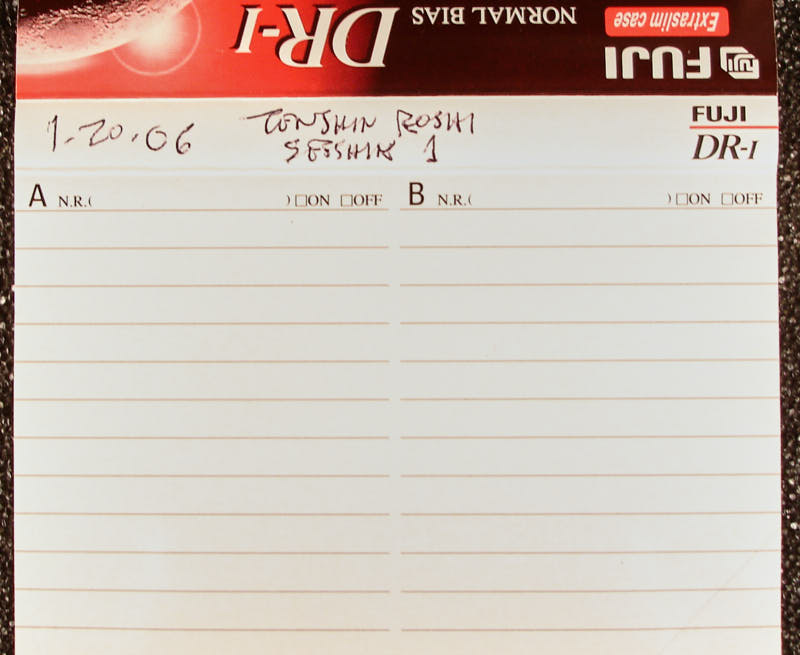 FUJI
Extraslim case
NORMAL BIAS
DR-I
1.20.06 TENSHIN ROSHI
SESSHIN 1
FUJI
DR-I
A N.R.( ) □ON □OFF
B N.R.( ) □ON □OFF